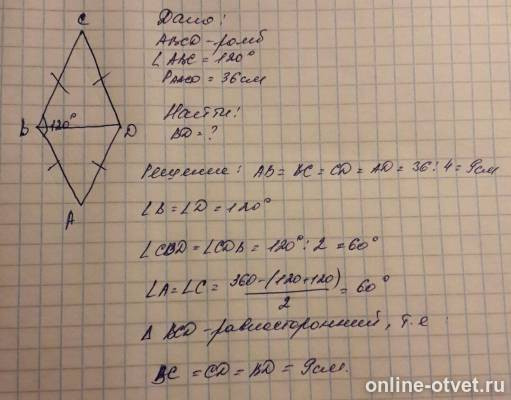 C
B
120°
D
A
Дано:
ABCD - ромб
∠ABC = 120°
PABCD = 36см
Найти:
BD = ?
Решение: AB = BC = CD = AD = 36 : 4 = 9см
∠B = ∠D = 120°
∠CBD = ∠CDB = 120° : 2 = 60°
∠A = ∠C = 360-(120+120) / 2 = 60°
Δ BCD - равносторонний, т.е
BC = CD = BD = 9см.
online-otvet.ru